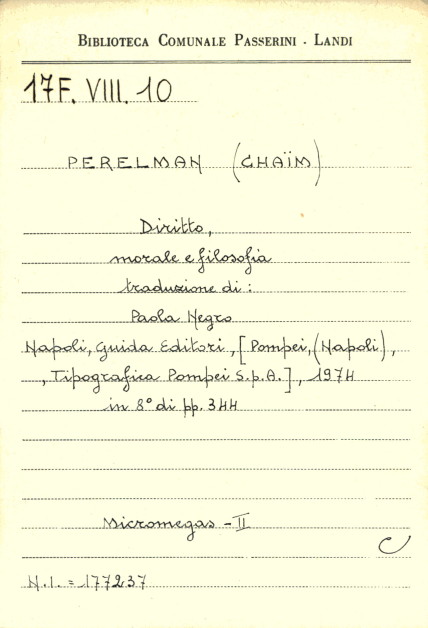 BIBLIOTECA COMUNALE PASSERINI - LANDI
17F. VIII. 10
PERELMAN (CHAÏM)
Diritto,
morale e filosofia
traduzione di :
Paola Negro
Napoli, Guida Editori, [Pompei, (Napoli),
, Tipografica Pompei S.p.A.], 1974
in 8° di pp. 344
Micromegas - II
C
N.I. = 177237